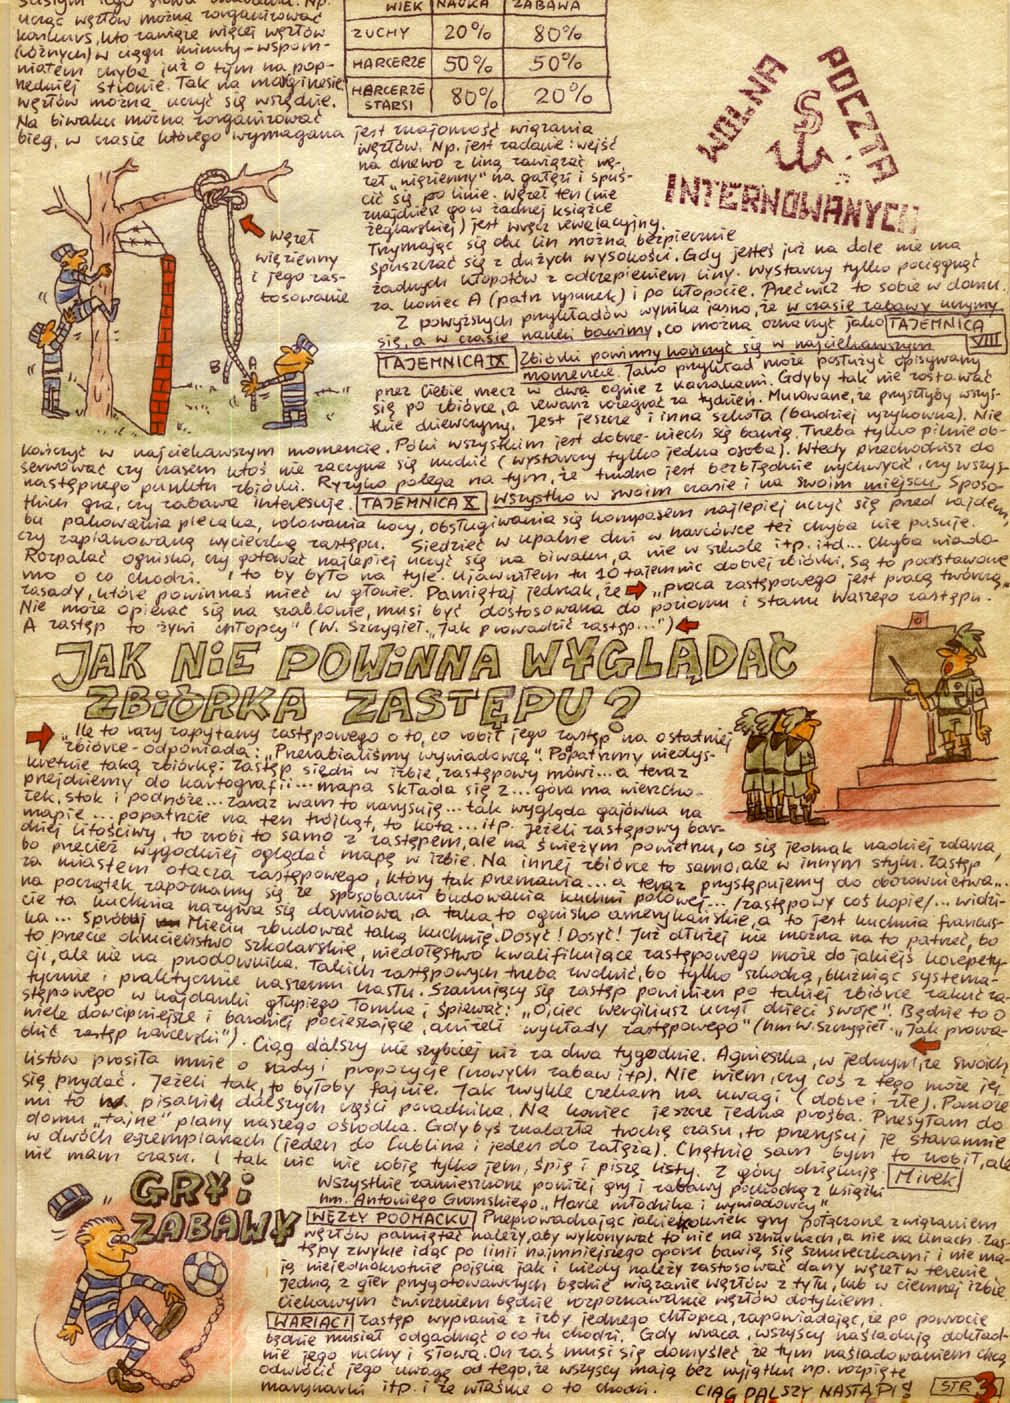 WIEK NAUKA ZABAWA
ZUCHY 20% 80%
HARCERZE 50% 50%
HARCERZE STARSI 80% 20%
ucząc węzłów można zorganizować
konkurs, kto zawiąże więcej węzłów
(różnych) w ciągu minuty – wspom-
niałem chyba już o tym na pop-
rzedniej stronie. Tak na marginesie
węzłów można uczyć się wszędzie.
Na biwaku można zorganizować
bieg, w czasie którego wymagana jest znajomość wiązania
węzłów. Np. jest zadanie: wejść
na drzewo z liną zawiązać wę-
zeł „więzienny" na gałęzi i spuś-
cić się po linie. Węzeł ten (nie
znajdziesz go w żadnej książce
żeglarskiej) jest wręcz rewelacyjny.
Trzymając się obu lin można bezpiecznie
spuszczać się z dużych wysokości. Gdy jesteś już na dole nie ma
żadnych kłopotów z odczepieniem liny. Wystarczy tylko pociągnąć
za koniec A (patrz rysunek) i po kłopocie. Przećwicz to sobie w domu.
WOLNA POCZTA
INTERNOWANYCH
węzeł
więzienny
i jego zas-
tosowanie
B
Z powyższych przykładów wynika jasno, że w czasie zabawy uczymy
się, a w czasie nauki bawimy, co można oznaczyć jako TAJEMNICA VIII
TAJEMNICA IX Zbiórki powinny kończyć się w najciekawszym
momencie. Jako przykład może posłużyć opisywany
przez Ciebie mecz w dwa ognie z kanakami. Gdyby tak nie zostawać
się po zbiórce, a rewanż rozegrać za tydzień. Murowane, że przyszłyby wszys-
tkie dziewczyny. Jest jeszcze i inna szkoła (bardziej ryzykowna). Nie
kończyć w najciekawszym momencie. Póki wszystkim jest dobrze – niech się bawią. Trzeba tylko pilnie ob-
serwować czy czasem ktoś nie zaczyna się nudzić (wystarczy tylko jedna osoba). Wtedy przechodzisz do
następnego punktu zbiórki. Ryzyko polega na tym, że trudno jest bezbłędnie wychwycić, czy wszys-
tkich gra, czy zabawa interesuje. TAJEMNICA X Wszystko w swoim czasie i na swoim miejscu. Sposo-
bu pakowania plecaka, rolowania kocy, obsługiwania się kompasem najlepiej uczyć się przed rajdem,
czy zaplanowaną wycieczką zastępu. Siedzieć w upalne dni w harcówce też chyba nie pasuje.
Rozpalać ognisko, czy gotować najlepiej uczyć się na biwaku, a nie w szkole itp. itd... chyba wiado-
mo o co chodzi. I to by było na tyle. Ujawniłem tu 10 tajemnic dobrej zbiórki. Są to podstawowe
zasady, które powinnaś mieć w głowie. Pamiętaj jednak, że „praca zastępowego jest pracą twórczą.
Nie może opierać się na szablonie, musi być dostosowana do poziomu i stanu Waszego zastępu.
A zastęp to żywi chłopcy" (W. Szczygieł „Jak prowadzić zastęp...")
JAK NIE POWINNA WYGLĄDAĆ
ZBIÓRKA ZASTĘPU?
„Ile to razy zapytany zastępowego o to, co robił jego zastęp na ostatniej
zbiórce – odpowiada: „Przerabialiśmy wywiadowcę". Popatrzmy niedys-
kretnie taką zbiórkę: Zastęp siedzi w izbie, zastępowy mówi... a teraz
przejdziemy do kartografii... mapa składa się z... góra ma wierzcho-
łek, stok i podnóże... zaraz wam to narysuję... tak wygląda gajówka na
mapie... popatrzcie na ten trójkąt, to kota... itp. Jeżeli zastępowy bar-
dziej litościwy, to robi to samo z zastępem, ale na świeżym powietrzu, co się jednak rzadziej zdarza,
bo przecież wygodniej oglądać mapę w izbie. Na innej zbiórce to samo, ale w innym stylu. Zastęp
za miastem otacza zastępowego, który tak przemawia... a teraz przystępujemy do obozownictwa...
na początek zapoznamy się ze sposobami budowania kuchni polowej... /zastępowy coś kopie/... widzi-
cie ta kuchnia nazywa się darniowa, a taka to ognisko amerykańskie, a to jest kuchnia francus-
ka... Spróbuj Mieciu zbudować taką kuchnię. Dosyć! Dosyć! Już dłużej nie można na to patrzeć, bo
to przecie okrucieństwo szkolarskie, niedołęstwo kwalifikujące zastępowego może do jakiejś korepety-
cji, ale nie na przodownika. Takich zastępowych trzeba zwolnić, bo tylko szkodzą, bluźniąc systema-
tycznie i praktycznie naszemu hasłu. Szanujący się zastęp powinien po takiej zbiórce zakuć za-
stępowego w kajdanki głupiego Tomka, i śpiewać: „Ojciec Wergiliusz uczył dzieci swoje". Będzie to o
wiele dowcipniejsze i bardziej pocieszające, aniżeli wykłady zastępowego" (hm W. Szczygieł „Jak prowa-
dzić zastęp harcerski"). Ciąg dalszy nie szybciej niż za dwa tygodnie. Agnieszka, w jednym ze swoich
listów prosiła mnie o rady i propozycje (nowych zabaw itp). Nie wiem, czy coś z tego może jej
się przydać. Jeżeli tak, to byłoby fajnie. Jak zwykle czekam na uwagi (dobre i złe). Pomoże
mi to w pisaniu dalszych części poradnika. Na koniec jeszcze jedna prośba. Przesyłam do
domu „tajne" plany naszego ośrodka. Gdybyś znalazła trochę czasu, to przerysuj je starannie
w dwóch egzemplarzach (jeden do Lublina i jeden do Załęża). Chętnie sam bym to zrobił, ale
nie mam czasu. I tak nic nie robię tylko jem, śpię i piszę listy. Z góry dziękuję Mirek
GRY i
ZABAWY
Wszystkie zamieszczone poniżej gry i zabawy pochodzą z książki
hm. Antoniego Gromskiego „Harce młodzika i wywiadowcy"
WĘZŁY POOMACKU Przeprowadzając jakiekolwiek gry połączone z wiązaniem
węzłów pamiętać należy, aby wykonywać to nie na sznurkach, a nie na linach. Zas-
tępy zwykle idąc po linii najmniejszego oporu bawią się sznureczkami i nie ma-
ją niejednokrotnie pojęcia jak i kiedy należy zastosować dany węzeł w terenie.
Jedną z gier przygotowawczych będzie wiązanie węzłów z tyłu, lub w ciemnej izbie.
Ciekawym ćwiczeniem będzie rozpoznawanie węzłów dotykiem.
WARIACI Zastęp wyprasza z izby jednego chłopca, zapowiadając, że po powrocie
będzie musiał odgadnąć o co tu chodzi. Gdy wraca, wszyscy naśladują dokład-
nie jego ruchy i słowa. On zaś musi się domyśleć że tym naśladowaniem chcą
odwrócić jego uwagę od tego, że wszyscy mają bez wyjątku np. rozpięte
marynarki itp. i że właśnie o to chodzi.
CIĄG DALSZY NASTĄPI! STR 3